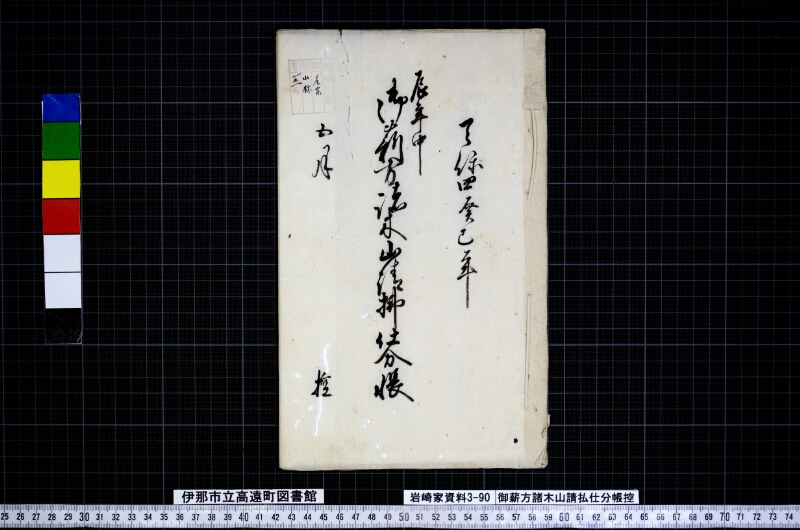 天保四癸巳年
辰年中
御薪方諸木山請払仕分帳
五月
控
山林
伊那市立高遠町図書館
岩崎家資料3-90
御薪方諸木山請払仕分帳控
25 26 27 28 29 30 31 32 33 34 35 36 37 38 39 40 41 42 43 44 45 46 47 48 49 50 51 52 53 54 55 56 57 58 59 60 61 62 63 64 65 66 67 68 69 70 71 72 73 74